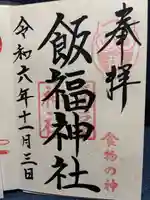 奉拝
食物の神
飯福神社
令和六年十一月三日